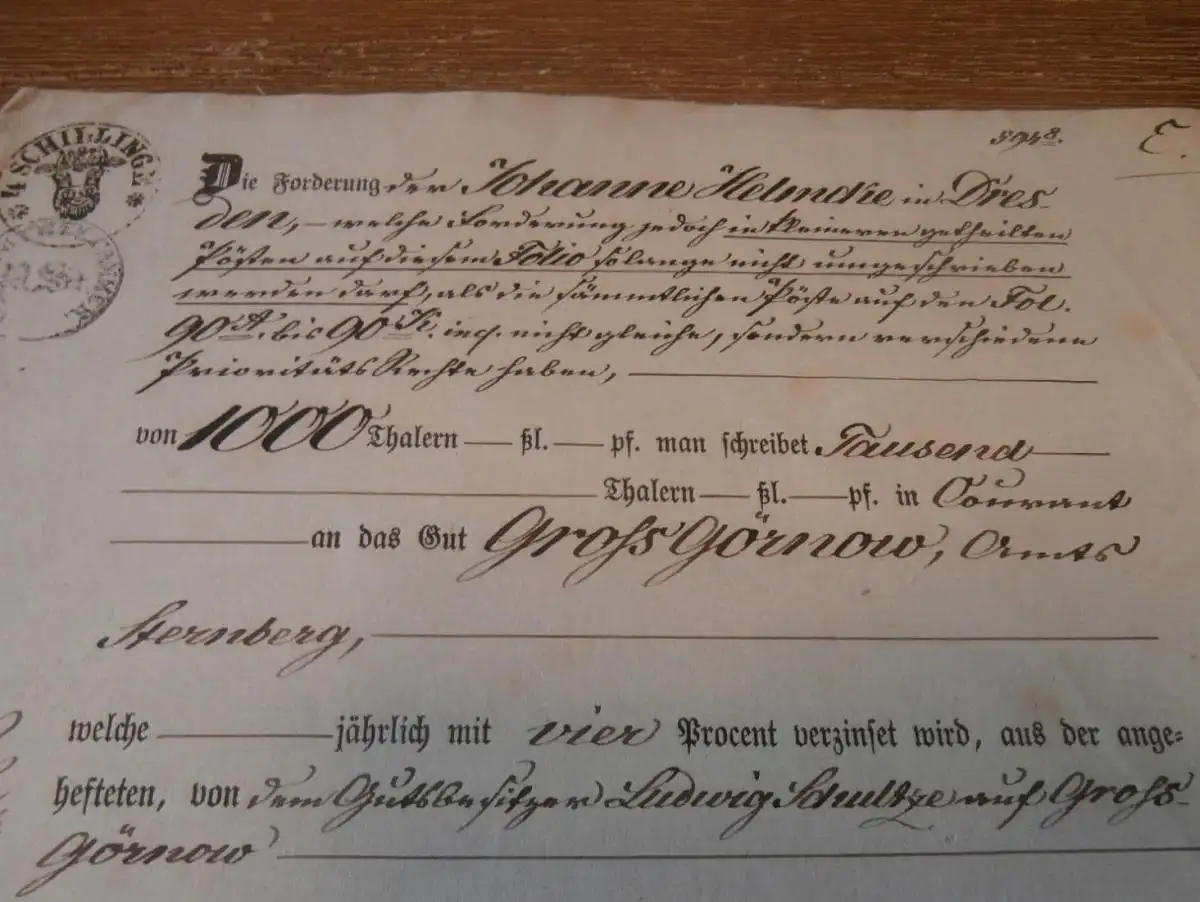 594⁸.
E.
* 4 SCHILLING *
Die Forderung der Johanne Helmcke in Dres-
den, – welche Forderung jedoch in kleineren getheilten
Pösten auf diesem Folio solange nicht umgeschrieben
werden darf, als die sämmtlichen Pöste auf den Fol.
90ᴬ. bis 90ᴷ. incl. nicht gleiche, sondern verschiedene
Prioritäts Rechte haben,
von 1000 Thalern — ßl. — pf. man schreibet Tausend
Thalern — ßl. — pf. in Courant
an das Gut Gross Görnow, Amts
Sternberg,
welche jährlich mit vier Procent verzinset wird, aus der ange-
hefteten, von dem Gutsbesitzer Ludwig Schultze auf Gross-
Görnow